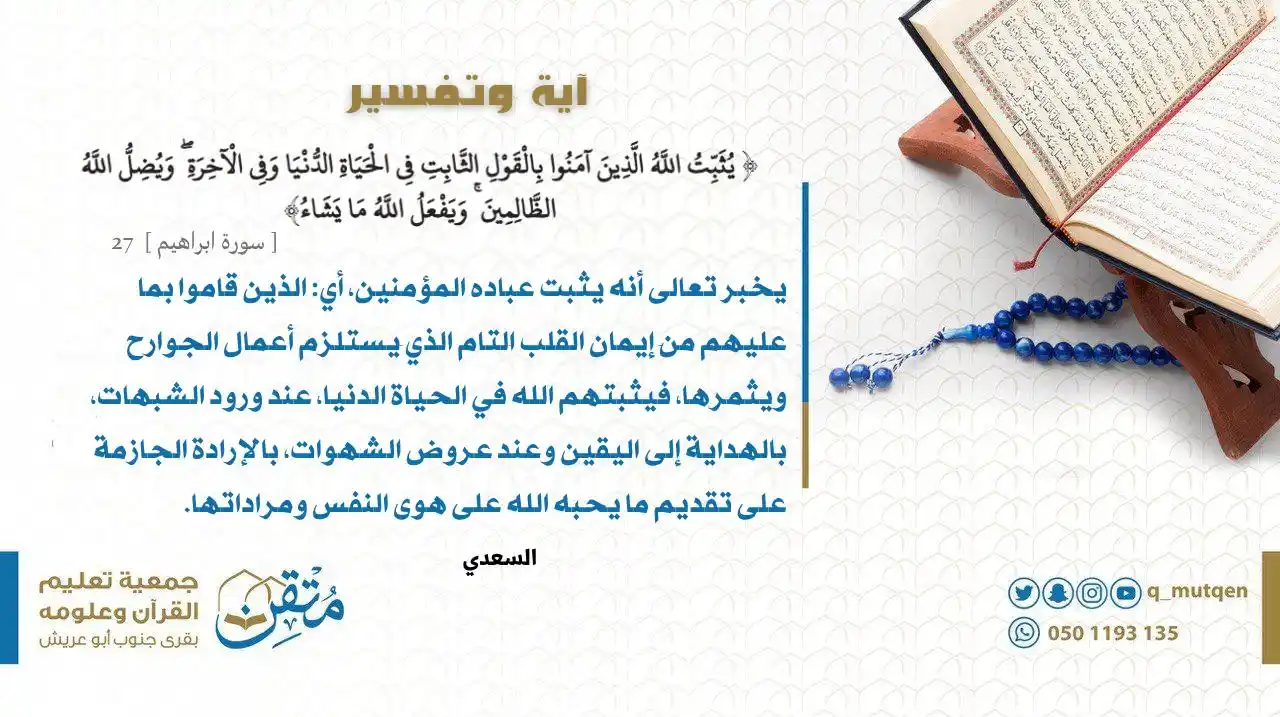 آية وتفسير
﴿ يُثَبِّتُ اللَّهُ الَّذِينَ آمَنُوا بِالْقَوْلِ الثَّابِتِ فِي الْحَيَاةِ الدُّنْيَا وَفِي الْآخِرَةِ ۖ وَيُضِلُّ اللَّهُ
الظَّالِمِينَ ۚ وَيَفْعَلُ اللَّهُ مَا يَشَاءُ﴾
[ سورة ابراهيم ] 27
يخبر تعالى أنه يثبت عباده المؤمنين، أي: الذين قاموا بما
عليهم من إيمان القلب التام الذي يستلزم أعمال الجوارح
ويثمرها، فيثبتهم الله في الحياة الدنيا، عند ورود الشبهات،
بالهداية إلى اليقين وعند عروض الشهوات، بالإرادة الجازمة
على تقديم ما يحبه الله على هوى النفس ومراداتها.
السعدي
مُتْقِن
جمعية تعليم
القرآن وعلومه
بقرى جنوب أبو عريش
q_mutqen
050 1193 135